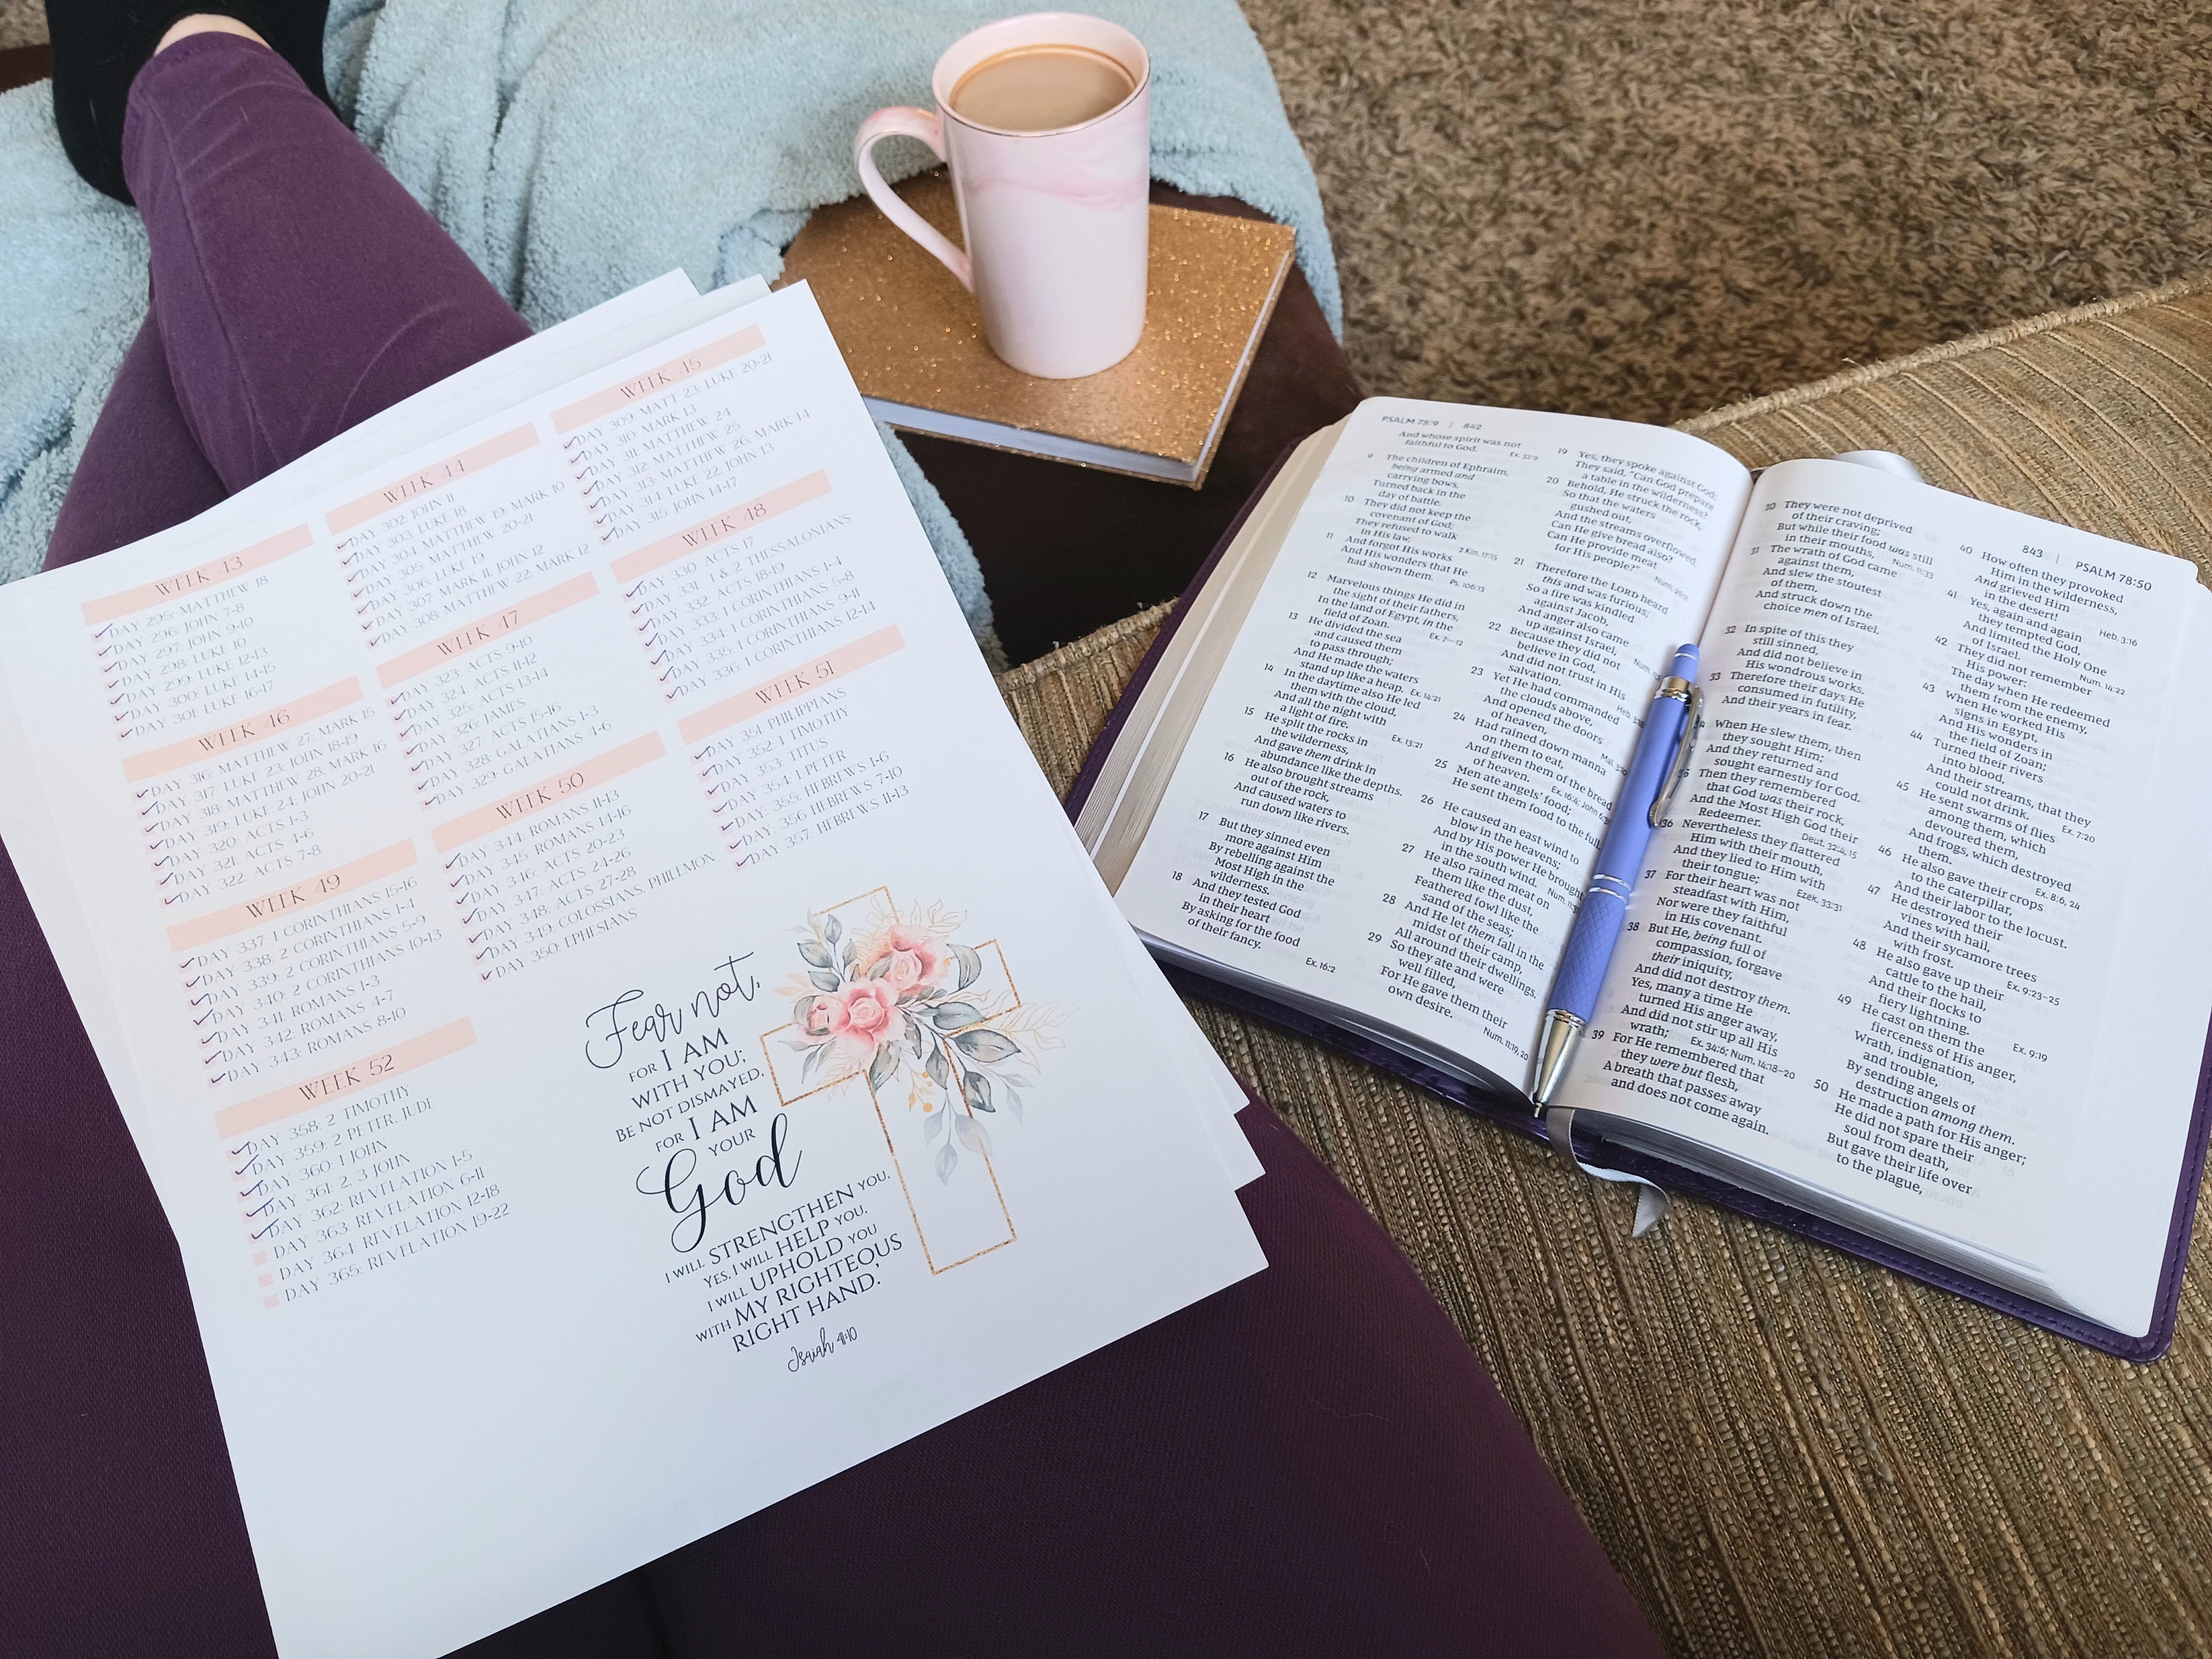 WEEK 43
DAY 295: MATTHEW 18
DAY 296: JOHN 7-8
DAY 297: JOHN 9-10
DAY 298: LUKE 10
DAY 299: LUKE 12-13
DAY 300: LUKE 14-15
DAY 301: LUKE 16-17
WEEK 44
DAY 302: JOHN 11
DAY 303: LUKE 18
DAY 304: MATTHEW 19; MARK 10
DAY 305: MATTHEW 20-21
DAY 306: LUKE 19
DAY 307: MARK 11; JOHN 12
DAY 308: MATTHEW 22; MARK 12
WEEK 45
DAY 309: MATT 23; LUKE 20-21
DAY 310: MARK 13
DAY 311: MATTHEW 24
DAY 312: MATTHEW 25
DAY 313: MATTHEW 26; MARK 14
DAY 314: LUKE 22; JOHN 13
DAY 315: JOHN 14-17
WEEK 46
DAY 316: MATTHEW 27; MARK 15
DAY 317: LUKE 23; JOHN 18-19
DAY 318: MATTHEW 28; MARK 16
DAY 319: LUKE 24; JOHN 20-21
DAY 320: ACTS 1-3
DAY 321: ACTS 4-6
DAY 322: ACTS 7-8
WEEK 47
DAY 323: ACTS 9-10
DAY 324: ACTS 11-12
DAY 325: ACTS 13-14
DAY 326: JAMES
DAY 327: ACTS 15-16
DAY 328: GALATIANS 1-3
DAY 329: GALATIANS 4-6
WEEK 48
DAY 330: ACTS 17
DAY 331: 1 & 2 THESSALONIANS
DAY 332: ACTS 18-19
DAY 333: 1 CORINTHIANS 1-4
DAY 334: 1 CORINTHIANS 5-8
DAY 335: 1 CORINTHIANS 9-11
DAY 336: 1 CORINTHIANS 12-14
WEEK 49
DAY 337: 1 CORINTHIANS 15-16
DAY 338: 2 CORINTHIANS 1-4
DAY 339: 2 CORINTHIANS 5-9
DAY 340: 2 CORINTHIANS 10-13
DAY 341: ROMANS 1-3
DAY 342: ROMANS 4-7
DAY 343: ROMANS 8-10
WEEK 50
DAY 344: ROMANS 11-13
DAY 345: ROMANS 14-16
DAY 346: ACTS 20-23
DAY 347: ACTS 24-26
DAY 348: ACTS 27-28
DAY 349: COLOSSIANS, PHILEMON
DAY 350: EPHESIANS
WEEK 51
DAY 351: PHILIPPIANS
DAY 352: 1 TIMOTHY
DAY 353: TITUS
DAY 354: 1 PETER
DAY 355: HEBREWS 1-6
DAY 356 HEBREWS 7-10
DAY 357: HEBREWS 11-13
WEEK 52
DAY 358: 2 TIMOTHY
DAY 359: 2 PETER, JUDE
DAY 360: 1 JOHN
DAY 361: 2, 3 JOHN
DAY 362: REVELATION 1-5
DAY 363: REVELATION 6-11
DAY 364: REVELATION 12-18
DAY 365: REVELATION 19-22
Fear not,
FOR I AM
WITH YOU;
BE NOT DISMAYED,
FOR I AM
YOUR
God
I WILL STRENGTHEN YOU,
YES, I WILL HELP YOU,
I WILL UPHOLD YOU
WITH MY RIGHTEOUS
RIGHT HAND.'
Isaiah 41:10
PSALM 78:9 | 842
And whose spirit was not
faithful to God.
9 The children of Ephraim,
being armed and
carrying bows,
Turned back in the
day of battle.
10 They did not keep the
covenant of God;
They refused to walk
in His law, 2 Kin. 17:15
11 And forgot His works
And His wonders that He
had shown them. Ps. 106:13
12 Marvelous things He did in
the sight of their fathers,
In the land of Egypt, in the
field of Zoan. Ex. 7—12
13 He divided the sea
and caused them
to pass through;
And He made the waters
stand up like a heap. Ex. 14:21
14 In the daytime also He led
them with the cloud,
And all the night with
a light of fire. Ex. 13:21
15 He split the rocks in
the wilderness,
And gave them drink in
abundance like the depths.
16 He also brought streams
out of the rock,
And caused waters to
run down like rivers.
17 But they sinned even
more against Him
By rebelling against the
Most High in the
wilderness.
18 And they tested God
in their heart
By asking for the food
of their fancy. Ex. 16:2
19 Yes, they spoke against God:
They said, "Can God prepare
a table in the wilderness?
20 Behold, He struck the rock,
So that the waters
gushed out,
And the streams overflowed.
Can He give bread also?
Can He provide meat
for His people?"
21 Therefore the LORD heard
this and was furious;
So a fire was kindled
against Jacob,
And anger also came
up against Israel,
22 Because they did not
believe in God,
And did not trust in His
salvation.
23 Yet He had commanded
the clouds above,
And opened the doors
of heaven,
24 Had rained down manna
on them to eat,
And given them of the bread
of heaven.
25 Men ate angels' food;
He sent them food to the full.
26 He caused an east wind to
blow in the heavens;
And by His power He brought
in the south wind.
27 He also rained meat on
them like the dust,
Feathered fowl like the
sand of the seas;
28 And He let them fall in the
midst of their camp,
All around their dwellings.
29 So they ate and were
well filled,
For He gave them their
own desire. Num. 11:19, 20
843 | PSALM 78:50
30 They were not deprived
of their craving;
But while their food was still
in their mouths, Num. 11:33
31 The wrath of God came
against them,
And slew the stoutest
of them,
And struck down the
choice men of Israel.
32 In spite of this they
still sinned,
And did not believe in
His wondrous works.
33 Therefore their days He
consumed in futility,
And their years in fear.
When He slew them, then
they sought Him;
And they returned and
sought earnestly for God.
Then they remembered
that God was their rock,
And the Most High God their
Redeemer. Deut. 32:4, 15
36 Nevertheless they flattered
Him with their mouth,
And they lied to Him with
their tongue; Ezek. 33:31
37 For their heart was not
steadfast with Him,
Nor were they faithful
in His covenant.
38 But He, being full of
compassion, forgave
their iniquity,
And did not destroy them.
Yes, many a time He
turned His anger away,
And did not stir up all His
wrath; Ex. 34:6; Num. 14:18–20
39 For He remembered that
they were but flesh,
A breath that passes away
and does not come again.
40 How often they provoked
Him in the wilderness,
And grieved Him
in the desert! Heb. 3:16
41 Yes, again and again
they tempted God,
And limited the Holy One
of Israel. Num. 14:22
42 They did not remember
His power:
The day when He redeemed
them from the enemy,
43 When He worked His
signs in Egypt,
And His wonders in
the field of Zoan;
44 Turned their rivers
into blood,
And their streams, that they
could not drink. Ex. 7:20
45 He sent swarms of flies
among them, which
devoured them,
And frogs, which destroyed
them. Ex. 8:6, 24
46 He also gave their crops
to the caterpillar,
And their labor to the locust.
47 He destroyed their
vines with hail,
And their sycamore trees
with frost. Ex. 9:23–25
48 He also gave up their
cattle to the hail,
And their flocks to
fiery lightning. Ex. 9:19
49 He cast on them the
fierceness of His anger,
Wrath, indignation,
and trouble,
By sending angels of
destruction among them.
50 He made a path for His anger;
He did not spare their
soul from death,
But gave their life over
to the plague,